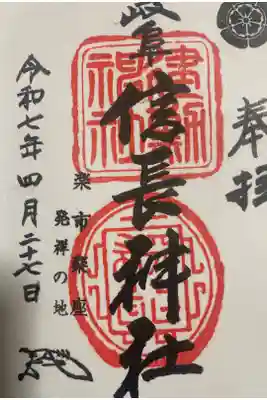 奉拝
岐阜信長神社
建勲神社
楽市楽座
発祥の地
令和七年四月二十七日